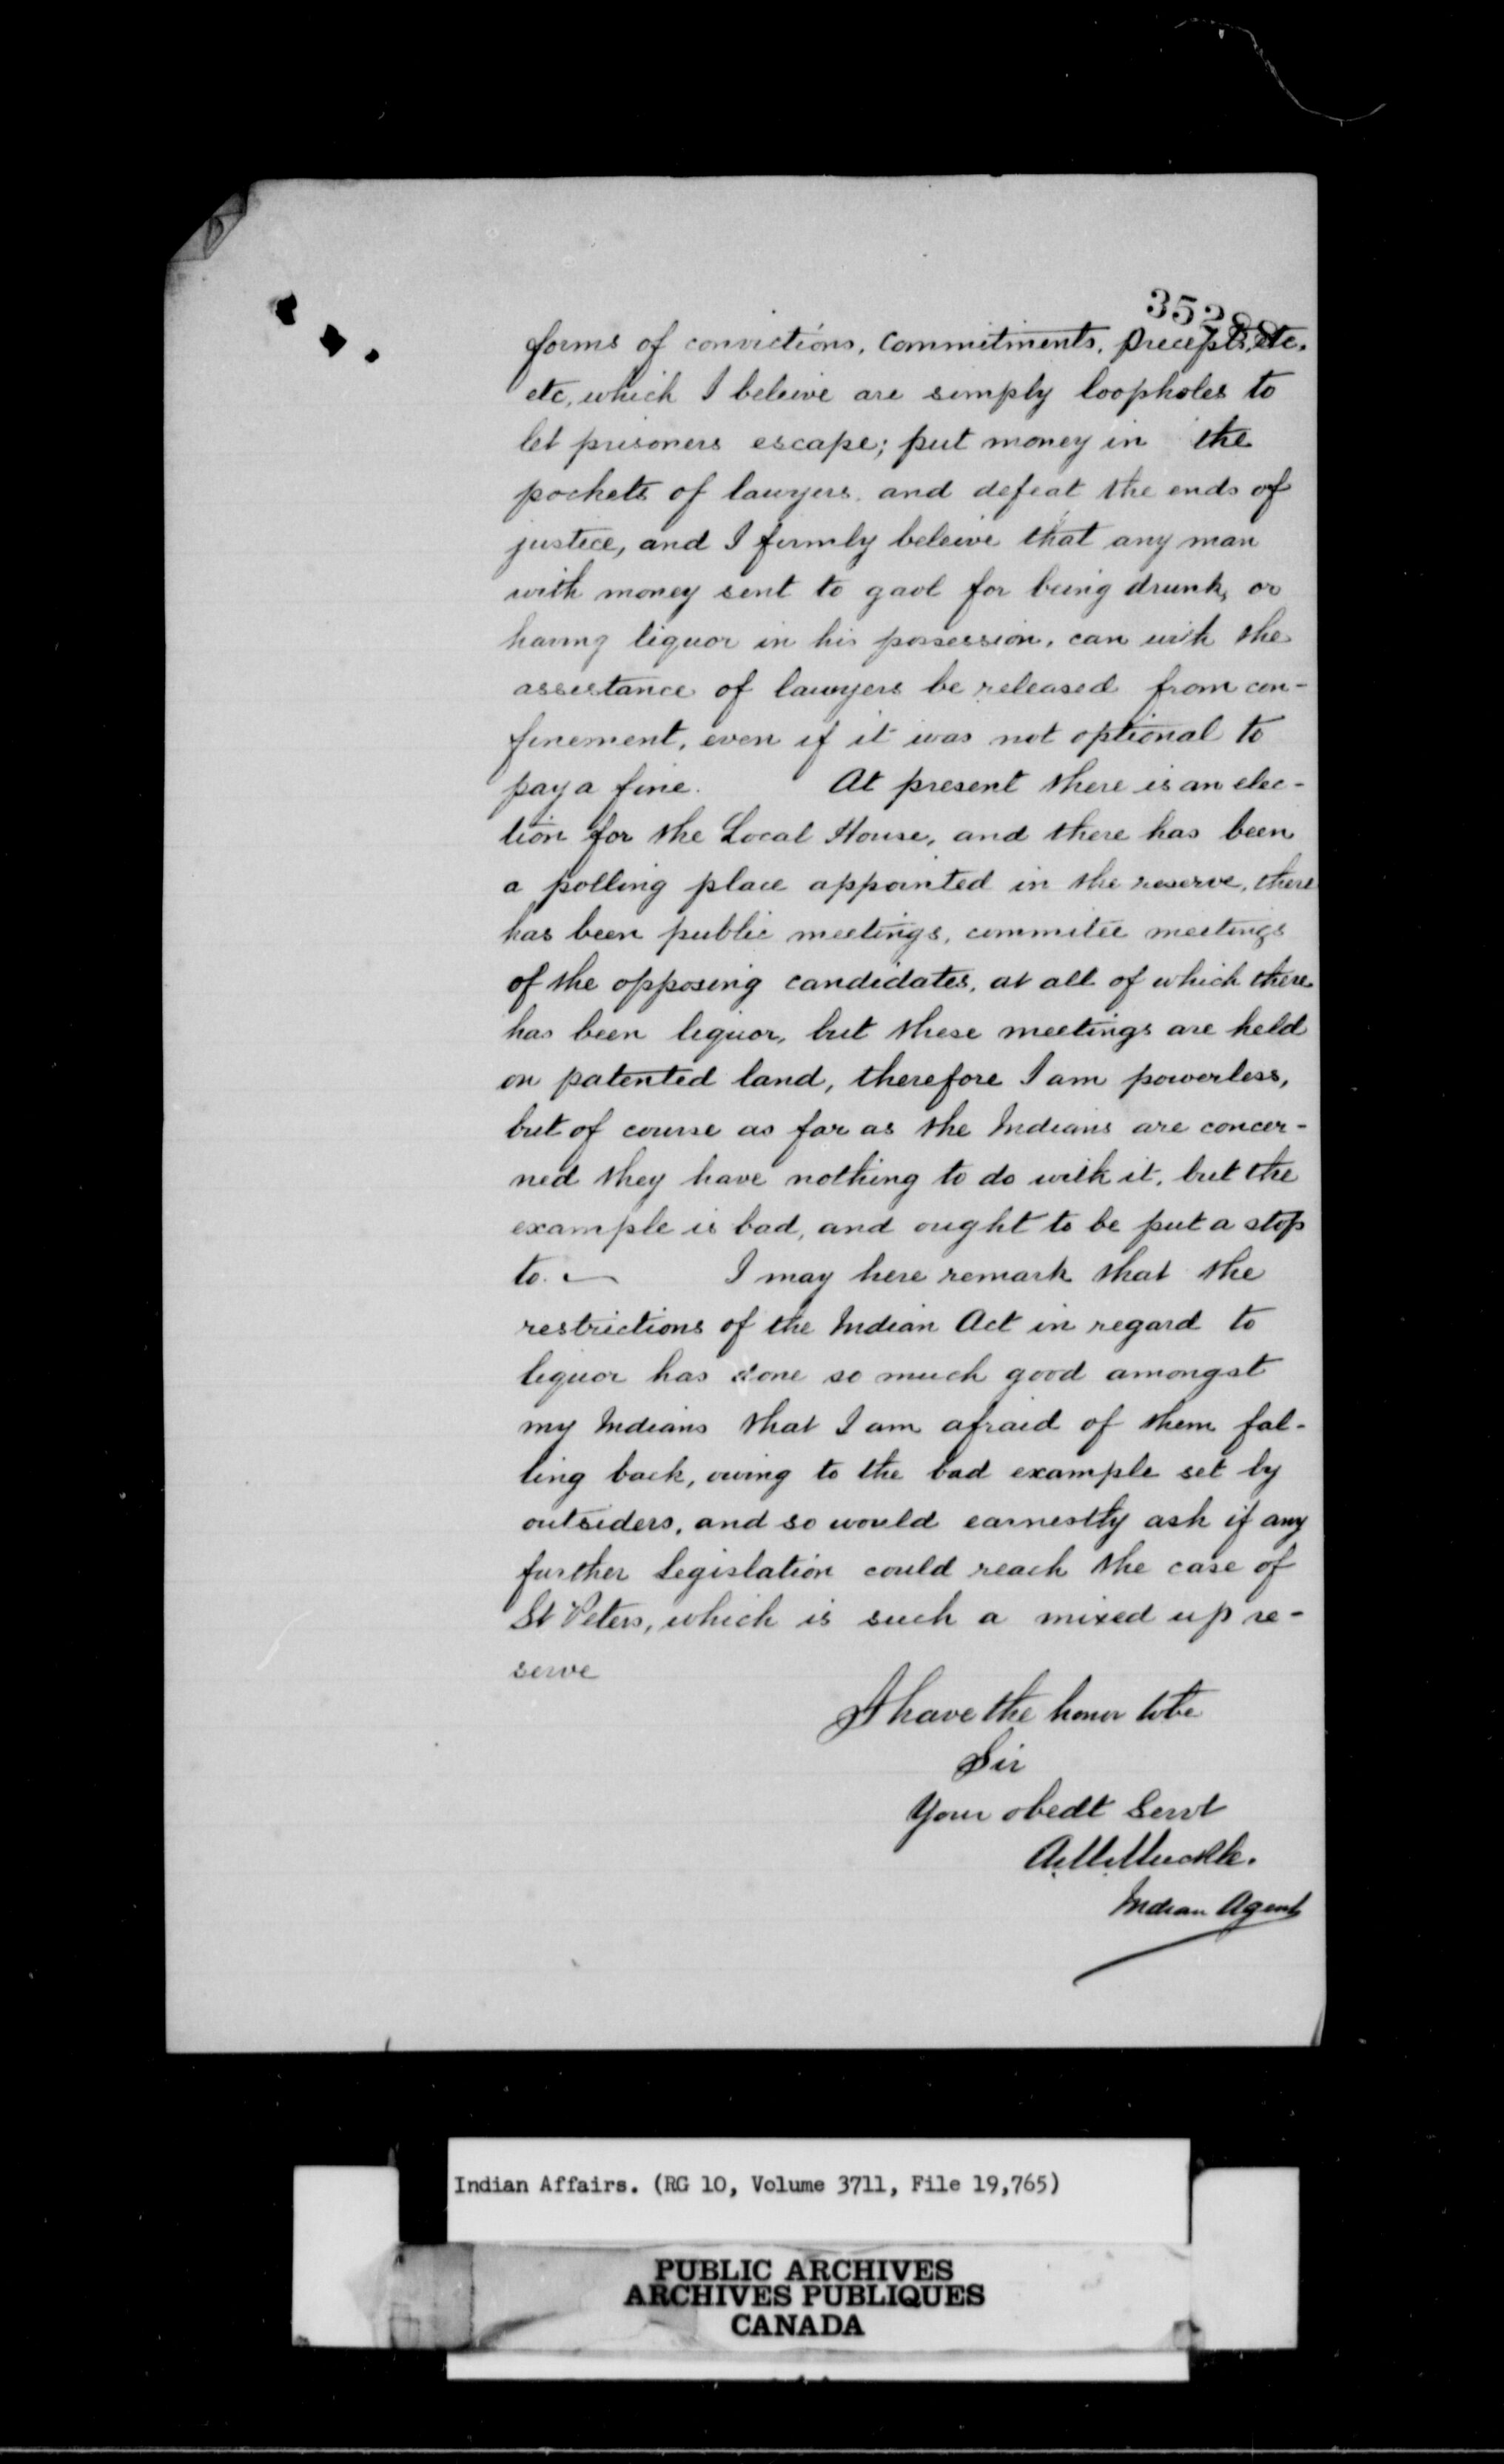 forms of convictions, commitments, precepts, etc.
etc, which I beleive are simply loopholes to
let prisoners escape; put money in the
pockets of lawyers and defeat the ends of
justice, and I firmly beleive that any man
with money sent to gaol for being drunk, or
having liquor in his possession, can with the
assistance of lawyers be released from con-
finement, even if it was not optional to
pay a fine. At present there is an elec-
tion for the Local House, and there has been
a polling place appointed in the reserve, there
has been public meetings, commitee meetings
of the opposing candidates, at all of which there
has been liquor, but these meetings are held
on patented land, therefore I am powerless,
but of course as far as the Indians are concer-
ned they have nothing to do with it, but the
example is bad, and ought to be put a stop
to. — I may here remark that the
restrictions of the Indian Act in regard to
liquor has done so much good amongst
my Indians that I am afraid of them fal-
ling back, owing to the bad example set by
outsiders, and so would earnestly ask if any
further legislation could reach the case of
St Peters, which is such a mixed up re-
serve
I have the honor to be
Sir
Your obedt Servt
A. M. Muckle.
Indian Agent
Indian Affairs. (RG 10, Volume 3711, File 19,765)
PUBLIC ARCHIVES
ARCHIVES PUBLIQUES
CANADA